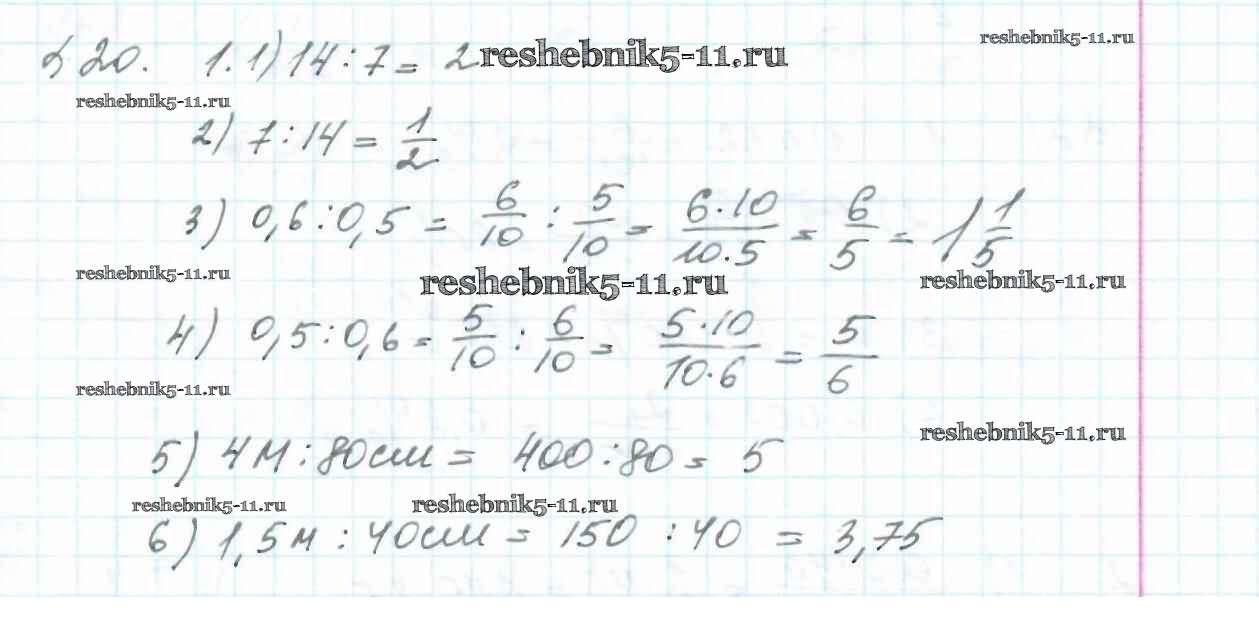 § 20. 1. 1) 14 : 7 = 2 reshebnik5-11.ru reshebnik5-11.ru
reshebnik5-11.ru
2) 7 : 14 = 1/2
3) 0,6 : 0,5 = 6/10 : 5/10 = 6·10/10·5 = 6/5 = 1 1/5
reshebnik5-11.ru reshebnik5-11.ru reshebnik5-11.ru
4) 0,5 : 0,6 = 5/10 : 6/10 = 5·10/10·6 = 5/6
reshebnik5-11.ru
reshebnik5-11.ru
5) 4 м : 80 см = 400 : 80 = 5
reshebnik5-11.ru reshebnik5-11.ru
6) 1,5 м : 40 см = 150 : 40 = 3,75